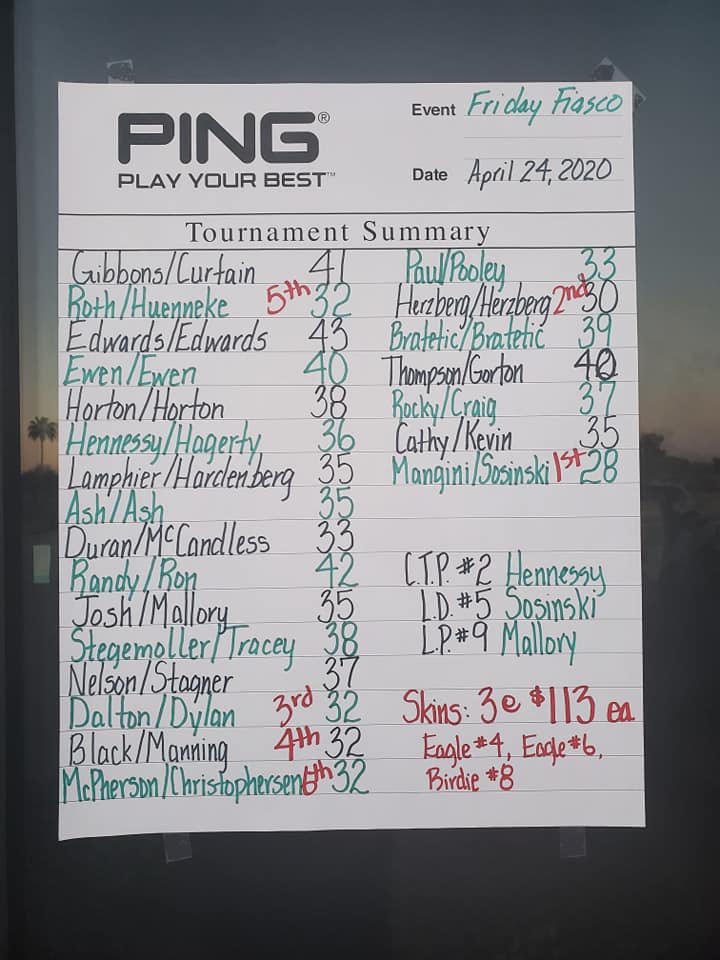 PING®
PLAY YOUR BEST™
Event Friday Fiasco
Date April 24, 2020
Tournament Summary
Gibbons/Curtain 41
Roth/Huenneke 5th 32
Edwards/Edwards 43
Ewen/Ewen 40
Horton/Horton 38
Hennessy/Hagerty 36
Lamphier/Hardenberg 35
Ash/Ash 35
Duran/McCandless 33
Randy/Ron 42
Josh/Mallory 35
Stegemoller/Tracey 38
Nelson/Stagner 37
Dalton/Dylan 3rd 32
Black/Manning 4th 32
McPherson/Christophersen 6th 32
Paul/Pooley 33
Herzberg/Herzberg 2nd 30
Bratetic/Bratetic 39
Thompson/Gorton 40
Rocky/Craig 37
Cathy/Kevin 35
Mangini/Sosinski 1st 28
C.T.P. #2 Hennessy
L.D. #5 Sosinski
L.P. #9 Mallory
Skins: 3@ $113 ea
Eagle #4, Eagle #6,
Birdie #8